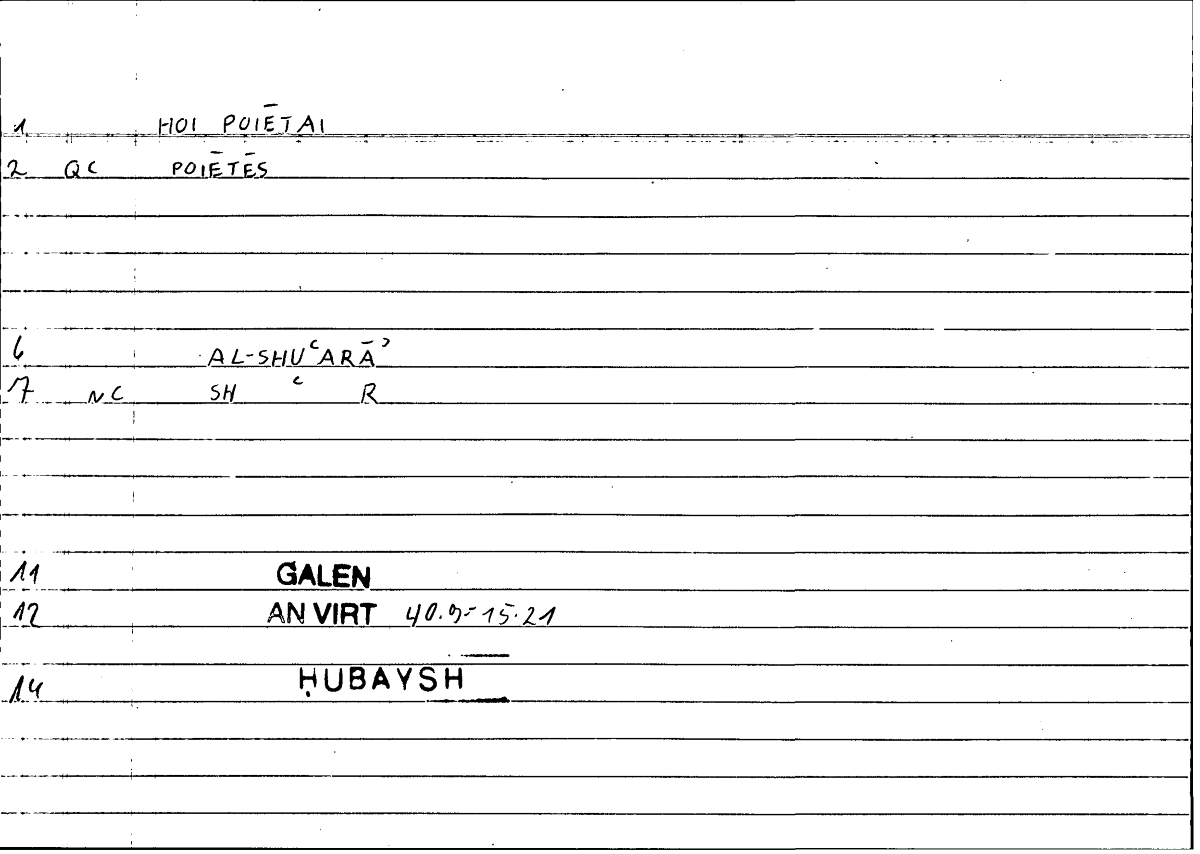 1 HOI POIĒTAI
2 QC POIĒTĒS
6 AL-SHUʿARĀʾ
7 NC SH ʿ R
11 GALEN
12 AN VIRT 40.9=15.21
14 ḤUBAYSH